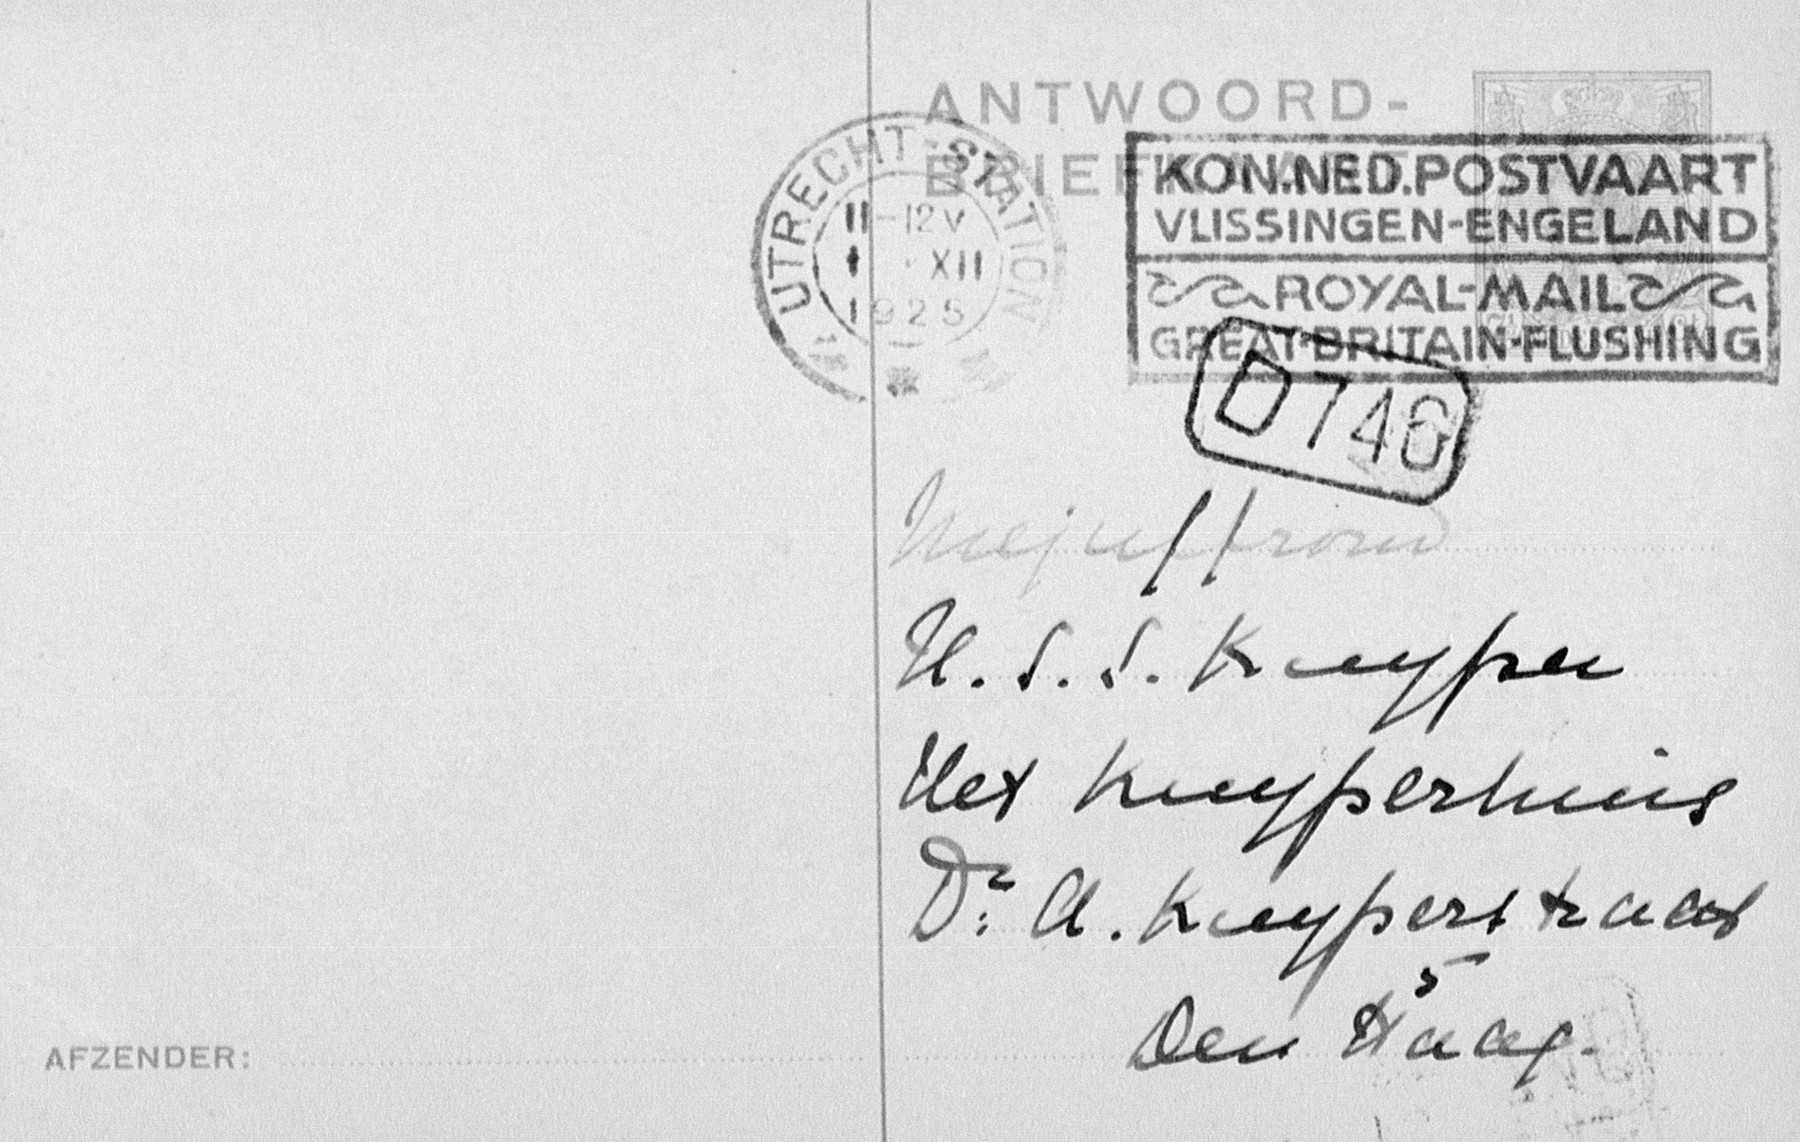 ANTWOORD-
BRIEFKAART
UTRECHT-STATION
11-12V
XII
1925
KON.NED.POSTVAART
VLISSINGEN-ENGELAND
ROYAL-MAIL
GREAT-BRITAIN-FLUSHING
D746
Mejuffrouw
H. S. S. Kuyper
Het Kuyperhuis
Dr. A. Kuyperstraat
5
Den Haag.
AFZENDER: